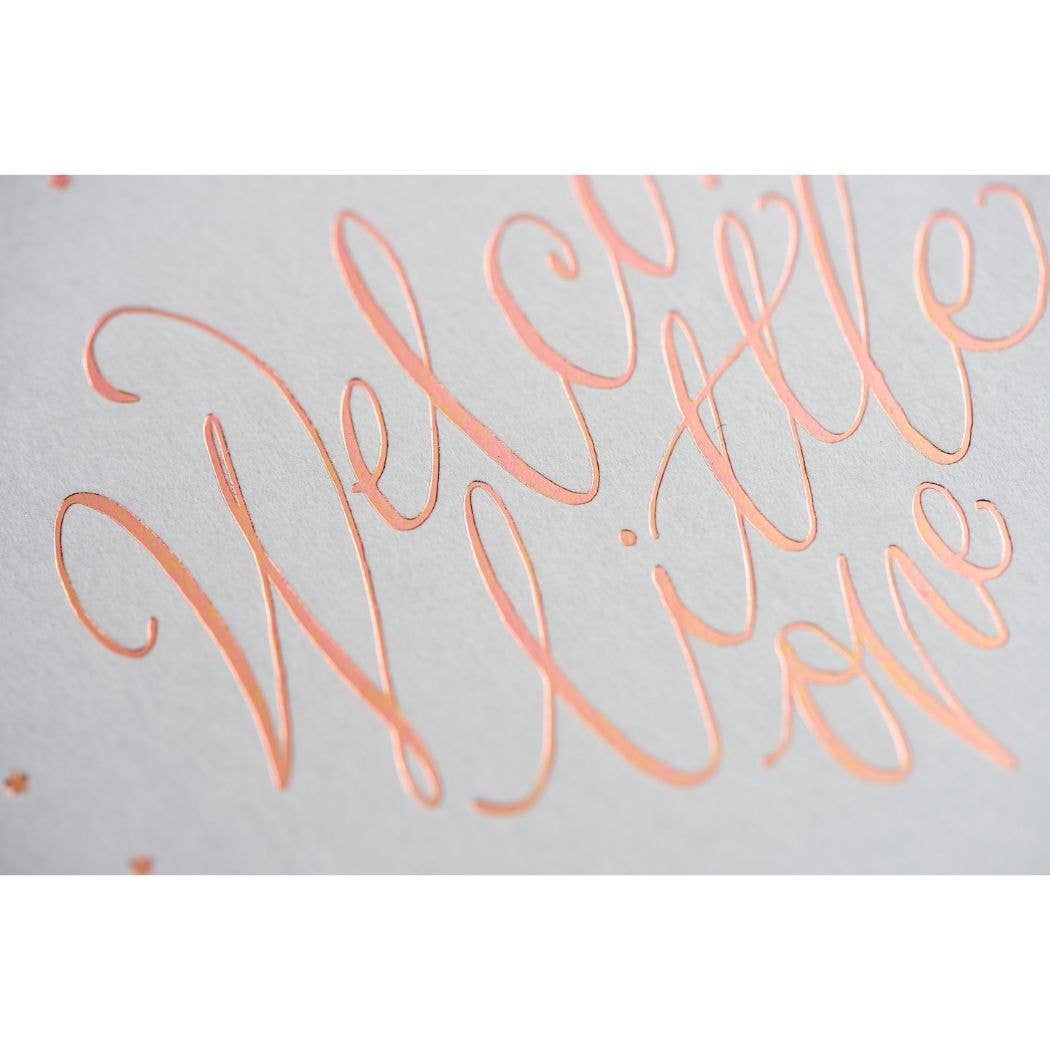 Welco
little
one